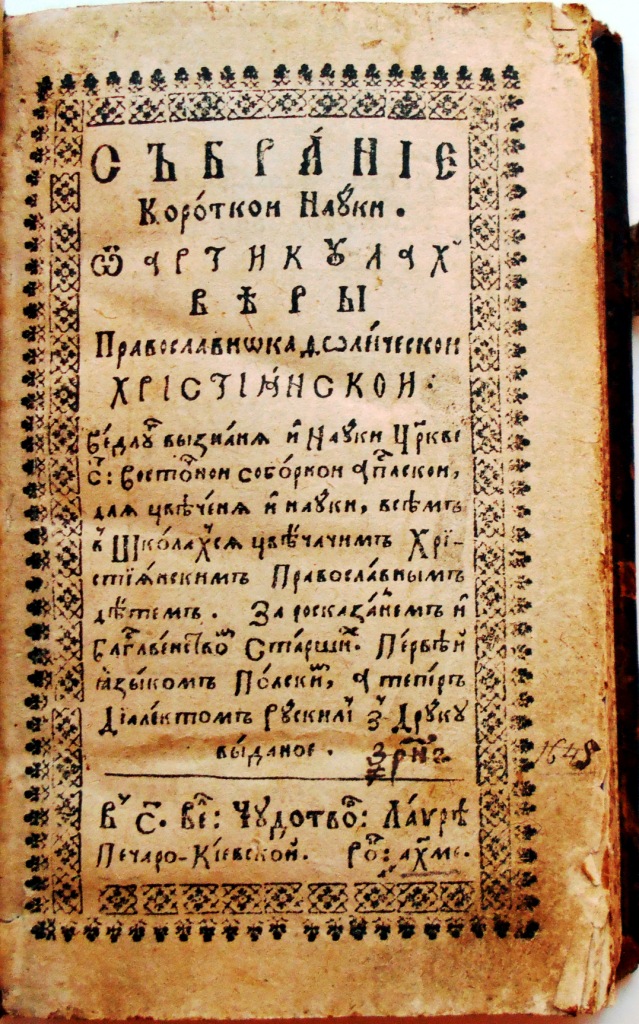 СЪБРА́НІЕ
Коро́ткои Наꙋ́ки.
Ѿ артикꙋлах
вѣры
Православнѡкаѳѡли́ческои
ХРІСТІА́НСКОИ:
ве́длꙋⷢ вызна́нѧ и҆ Наꙋ́ки Цр҃кве
С҃: Восто́чнои собо́рнои а҆пⷭ҇лскои,
длѧ цвѣче́нѧ и҆ наꙋ́ки, всѣ́мъ
в Шко́лахсѧ цвѣ́чачимъ Хрі-
стїѧ́нскимъ Правосла́внымъ
дѣ́темъ. За росказа́нємъ и҆
Блгⷭ҇ве́нствоⷨ Ста́ршиⷯ. Пе́рвѣй
ꙗ҆зы́комъ По́лскиⷨ, а҆ тепе́ръ
Діале́ктомъ Рꙋскимъ зⸯ Дрꙋкꙋ
вы́даное.
1645
вⸯ С҃. Веⷧ: Чꙋдотвоⷬ: Ла́ѵрѣ
Печаро-Кі́евской. Роⷦ: ҂ахме.